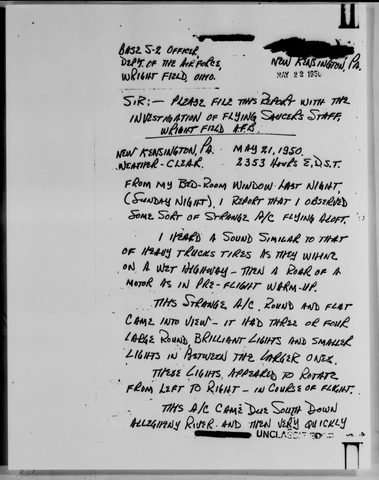 BASE S-2 OFFICER,
DEPT. OF THE AIR FORCE,
WRIGHT FIELD, OHIO.
NEW KENSINGTON, PA.
MAY 22 1950
SIR:— PLEASE FILE THIS REPORT WITH THE
INVESTIGATION OF FLYING SAUCERS STAFF,
WRIGHT FIELD A.F.B.
NEW KENSINGTON, PA. MAY 21, 1950.
WEATHER - CLEAR. 2353 HOURS E.D.S.T.
FROM MY BED-ROOM WINDOW LAST NIGHT,
(SUNDAY NIGHT), I REPORT THAT I OBSERVED
SOME SORT OF STRANGE A/C FLYING ALOFT.
I HEARD A SOUND SIMILAR TO THAT
OF HEAVY TRUCKS TIRES AS THEY WHINE
ON A WET HIGHWAY — THEN A ROAR OF A
MOTOR AS IN PRE-FLIGHT WARM-UP.
THIS STRANGE A/C, ROUND AND FLAT
CAME INTO VIEW — IT HAD THREE OR FOUR
LARGE ROUND BRILLIANT LIGHTS AND SMALLER
LIGHTS IN BETWEEN THE LARGER ONES.
THESE LIGHTS, APPEARED TO ROTATE
FROM LEFT TO RIGHT — IN COURSE OF FLIGHT.
THIS A/C CAME DUE SOUTH DOWN
ALLEGHENY RIVER AND THEN VERY QUICKLY
UNCLASSIFIED